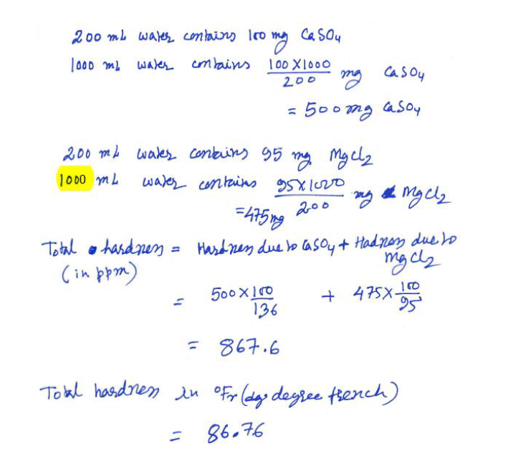 200 mL water contains 100 mg CaSO4
1000 mL water contains 100 X 1000 / 200 mg CaSO4
= 500 mg CaSO4
200 mL water contains 95 mg MgCl2
1000 mL water contains 95 X 1000 / 200 mg MgCl2
= 475 mg
Total hardness = Hardness due to CaSO4 + Hadness due to MgCl2
(in ppm)
= 500 X 100/136 + 475 X 100/95
= 867.6
Total hardness in °Fr (degree french)
= 86.76